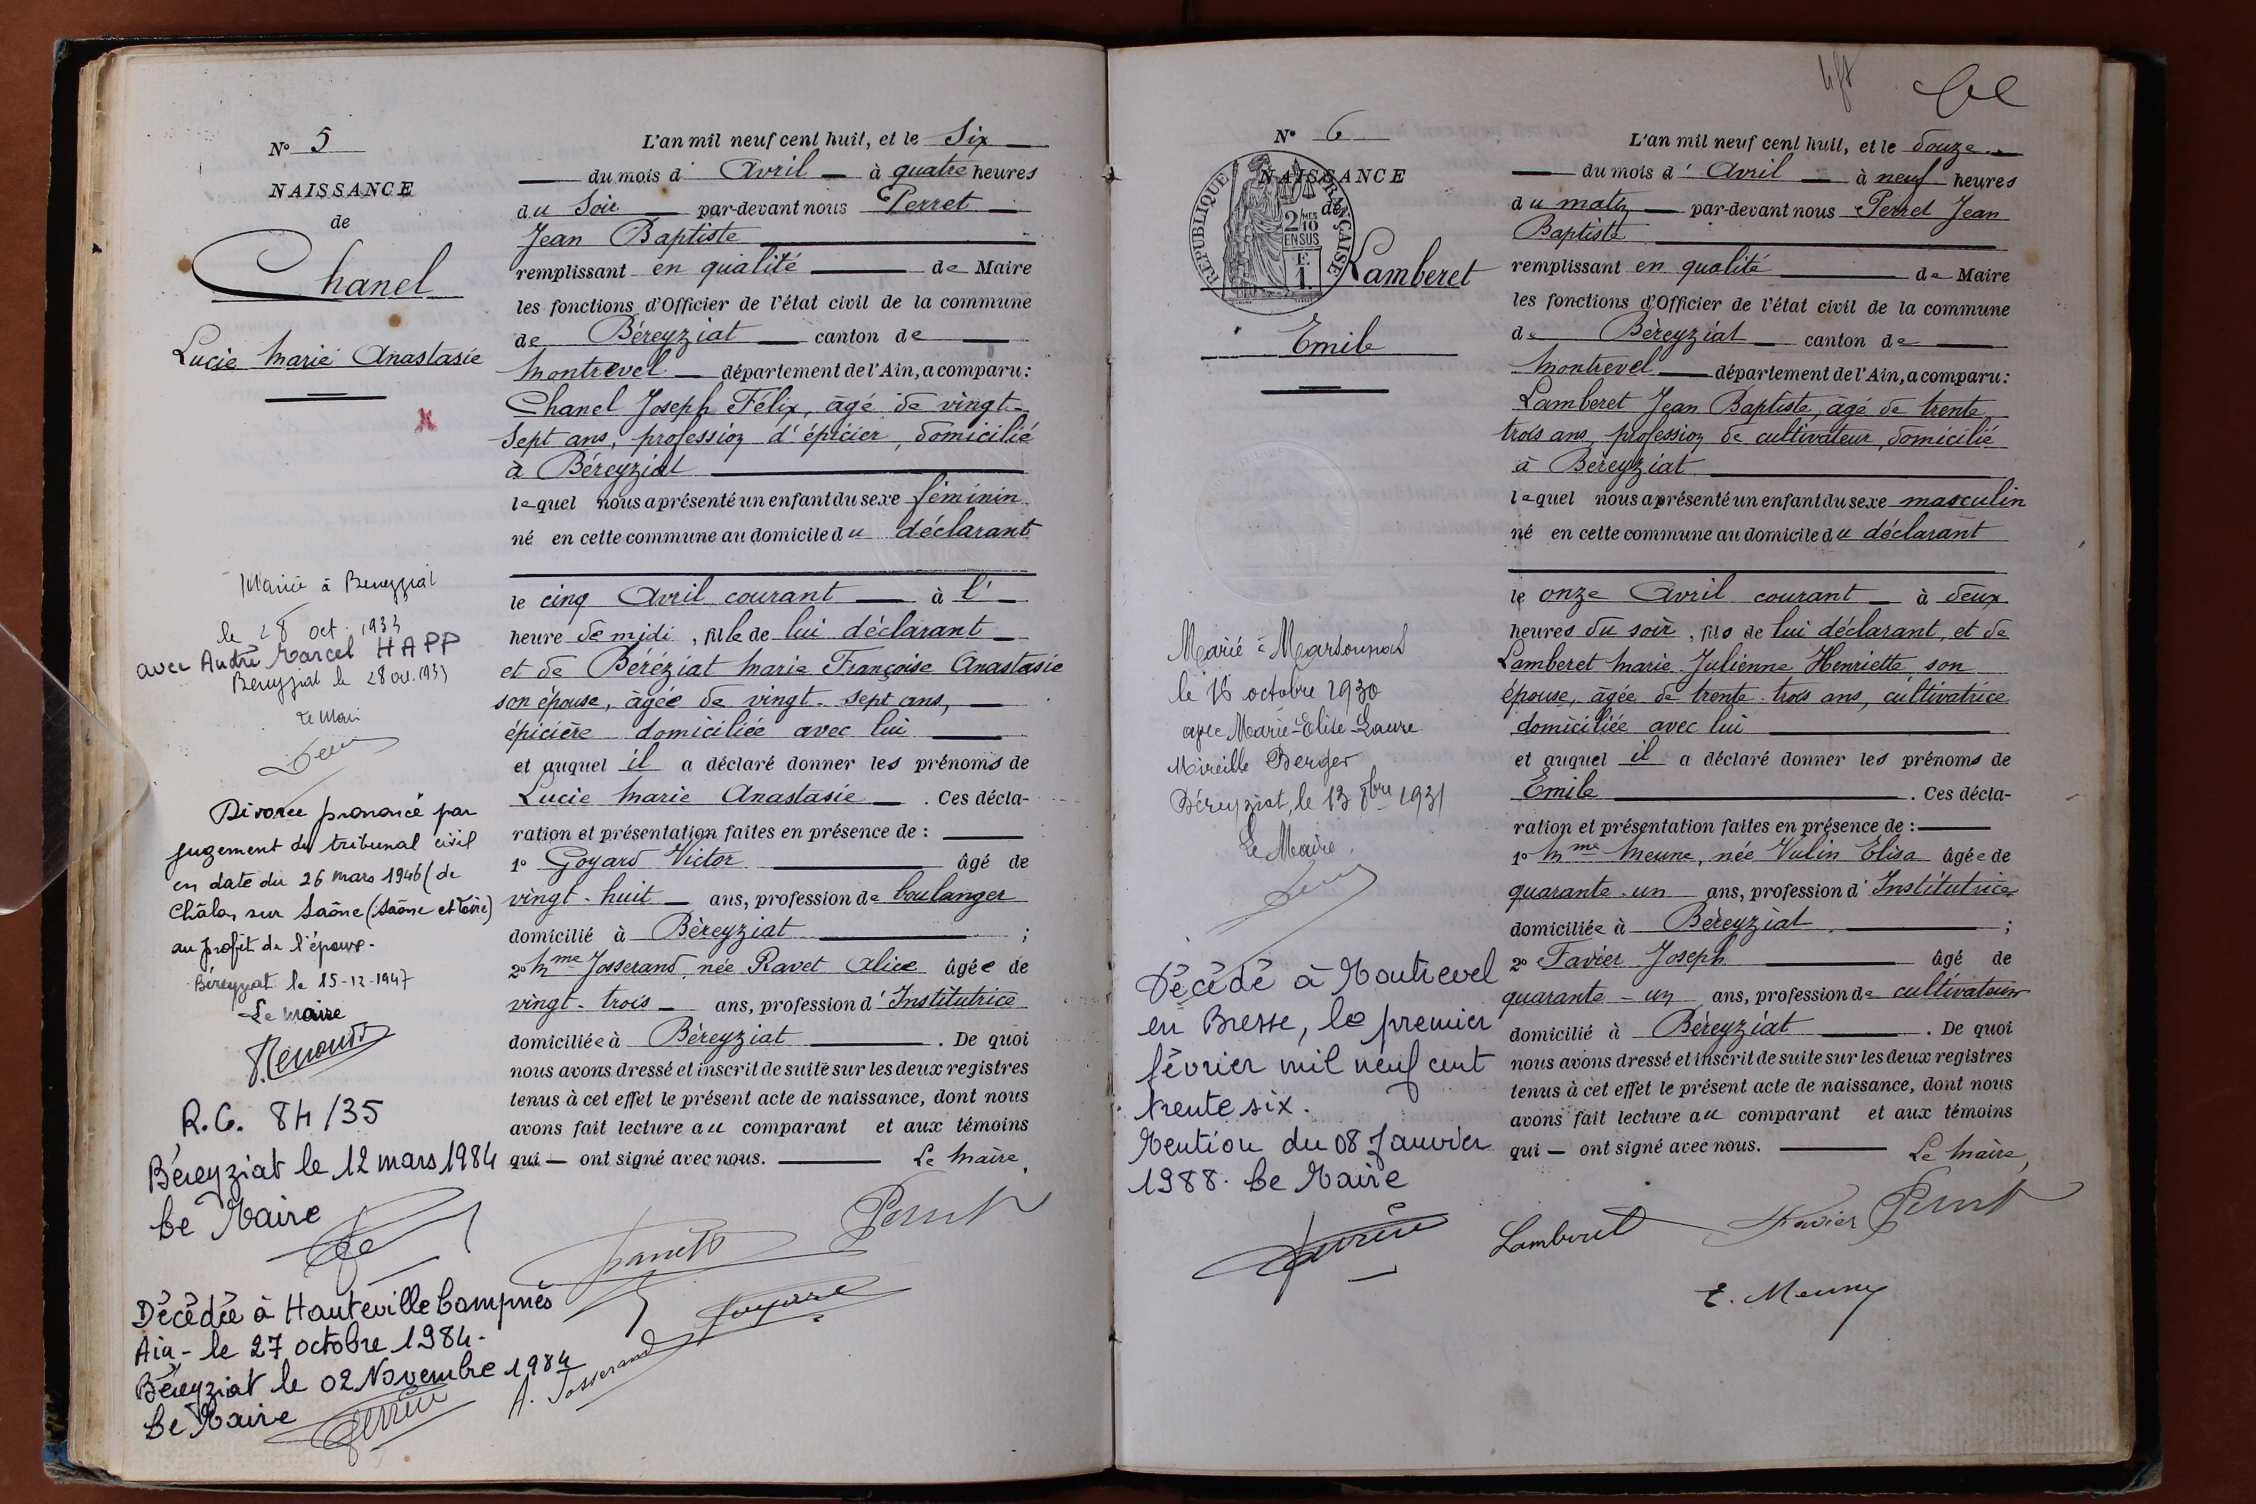 N° 5
NAISSANCE
de
Chanel
Lucie Marie Anastasie
X
Marié à Bereyziat
le 28 oct. 1933
avec André Marcel HAPP
Bereyziat le 28 oct. 1933
Le Maire
Divorce prononcé par
jugement du tribunal civil
en date du 26 mars 1946 (de
Châlon sur Saône (Saône et Loire)
au profit de l'épouse.
Béreyziat le 15-12-1947
Le maire
R.C. 84/35
Béreyziat le 12 mars 1984
Le Maire
Décédée à Hauteville Lompnès
Ain - le 27 octobre 1984.
Béreyziat le 02 Novembre 1984
Le Maire
L'an mil neuf cent huit, et le Six
du mois d Avril à quatre heures
du Soir par-devant nous Perret
Jean Baptiste
remplissant en qualité de Maire
les fonctions d'Officier de l'état civil de la commune
de Béreyziat canton de
Montrevel département de l'Ain, a comparu :
Chanel Joseph Félix, âgé de vingt-
sept ans, profession d'épicier, domicilié
à Béreyziat
lequel nous a présenté un enfant du sexe féminin
né en cette commune au domicile du déclarant
le cinq Avril courant à l'
heure de midi, fille de lui déclarant
et de Béréziat Marie Françoise Anastasie
son épouse, âgée de vingt-sept ans,
épicière domiciliée avec lui
et auquel il a déclaré donner les prénoms de
Lucie Marie Anastasie . Ces décla-
ration et présentation faites en présence de :
1° Goyard Victor âgé de
vingt-huit ans, profession de boulanger
domicilié à Béreyziat ;
2° Mme Josserand, née Ravet Alice âgée de
vingt-trois ans, profession d'Institutrice
domiciliée à Béreyziat . De quoi
nous avons dressé et inscrit de suite sur les deux registres
tenus à cet effet le présent acte de naissance, dont nous
avons fait lecture au comparant et aux témoins
qui ont signé avec nous. Le Maire,
Perret
Goyard
A. Josserand
N° 6
NAISSANCE
de
RÉPUBLIQUE FRANÇAISE
2/10 MES
EN SUS
F.
1.
Lamberet
Emile
Marié à Marsonnas
le 18 octobre 1930
avec Marie-Elise-Laure
Mireille Berger
Béreyziat, le 13 8bre 1931
Le Maire,
Décédé à Montrevel
en Bresse, le premier
février mil neuf cent
trente six.
Mention du 08 Janvier
1988. Le Maire
L'an mil neuf cent huit, et le douze
du mois d' Avril à neuf heures
du matin par-devant nous Perret Jean
Baptiste
remplissant en qualité de Maire
les fonctions d'Officier de l'état civil de la commune
de Béreyziat canton de
Montrevel département de l'Ain, a comparu :
Lamberet Jean Baptiste, âgé de trente
trois ans, profession de cultivateur, domicilié
à Béreyziat
lequel nous a présenté un enfant du sexe masculin
né en cette commune au domicile du déclarant
le onze Avril courant à deux
heures du soir, fils de lui déclarant, et de
Lamberet Marie Julienne Henriette son
épouse, âgée de trente-trois ans, cultivatrice
domiciliée avec lui
et auquel il a déclaré donner les prénoms de
Emile . Ces décla-
ration et présentation faites en présence de :
1° Mme Meune, née Vulin Elisa âgée de
quarante-un ans, profession d'Institutrice
domiciliée à Béreyziat ;
2° Favier Joseph âgé de
quarante-un ans, profession de cultivateur
domicilié à Béreyziat . De quoi
nous avons dressé et inscrit de suite sur les deux registres
tenus à cet effet le présent acte de naissance, dont nous
avons fait lecture au comparant et aux témoins
qui ont signé avec nous. Le Maire,
Lamberet Favier Perret
E. Meune